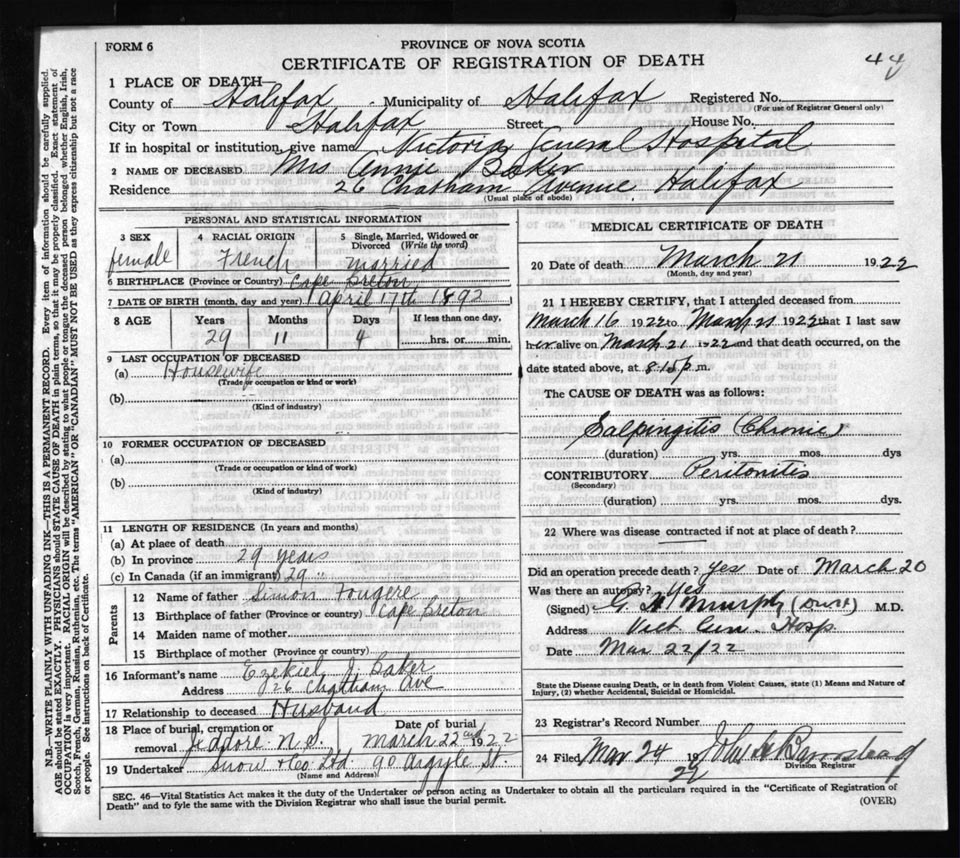 FORM 6
PROVINCE OF NOVA SCOTIA
CERTIFICATE OF REGISTRATION OF DEATH
44
1 PLACE OF DEATH—
County of Halifax Municipality of Halifax Registered No.
(For use of Registrar General only)
City or Town Halifax Street House No.
If in hospital or institution, give name Victoria General Hospital
2 NAME OF DECEASED Mrs Annie Baker
Residence 26 Chatham Avenue Halifax
(Usual place of abode)
PERSONAL AND STATISTICAL INFORMATION
3 SEX 4 RACIAL ORIGIN 5 Single, Married, Widowed or Divorced (Write the word)
female French married
6 BIRTHPLACE (Province or Country) Cape Breton
7 DATE OF BIRTH (month, day and year) April 17th 1892
8 AGE Years Months Days If less than one day,
29 11 4 hrs. or min.
9 LAST OCCUPATION OF DECEASED
(a) Housewife
(Trade or occupation or kind or work)
(b)
(Kind of industry)
10 FORMER OCCUPATION OF DECEASED
(a)
(Trade or occupation or kind of work)
(b)
(Kind of industry)
11 LENGTH OF RESIDENCE (In years and months)
(a) At place of death
(b) In province 29 years
(c) In Canada (if an immigrant) 29 "
Parents
12 Name of father Simon Fougere
13 Birthplace of father (Province or country) Cape Breton
14 Maiden name of mother
15 Birthplace of mother (Province or country)
16 Informant's name Ezekiel J. Baker
Address 26 Chatham Ave
17 Relationship to deceased Husband
18 Place of burial, cremation or removal Jeddore N.S. Date of burial March 22nd 1922
19 Undertaker Snow & Co. Ltd. 90 Argyle St.
(Name and Address)
MEDICAL CERTIFICATE OF DEATH
20 Date of death March 21 1922
(Month, day and year)
21 I HEREBY CERTIFY, that I attended deceased from
March 16 1922 to March 21 1922 that I last saw
her alive on March 21 1922 and that death occurred, on the
date stated above, at 8.15 p. m.
The CAUSE OF DEATH was as follows:
Salpingitis (Chronic)
(duration) yrs. mos. dys
CONTRIBUTORY Peritonitis
(Secondary)
(duration) yrs. mos. dys.
22 Where was disease contracted if not at place of death?
Did an operation precede death? Yes Date of March 20
Was there an autopsy? Yes
(Signed) G H Murphy M.D.
Address Vict Gen. Hosp
Date Mar 22/22
State the Disease causing Death, or in death from Violent Causes, state (1) Means and Nature of
Injury, (2) whether Accidental, Suicidal or Homicidal.
23 Registrar's Record Number
24 Filed Mar 24 1922
Division Registrar
SEC. 46—Vital Statistics Act makes it the duty of the Undertaker or person acting as Undertaker to obtain all the particulars required in the "Certificate of Registration of
Death" and to fyle the same with the Division Registrar who shall issue the burial permit.
(OVER)
N.B.—WRITE PLAINLY WITH UNFADING INK—THIS IS A PERMANENT RECORD. Every item of information should be carefully supplied.
AGE should be stated EXACTLY. PHYSICIANS should STATE CAUSE OF DEATH in plain terms, so that it may be properly classified. Exact statement of
OCCUPATION is very important. RACIAL ORIGIN will be described by stating to what people or tongue the deceased person belonged whether English, Irish,
Scotch, French, German, Russian, Ruthenian, etc. The terms "AMERICAN" OR "CANADIAN" MUST NOT BE USED as they express citizenship but not a race
or people. See instructions on back of Certificate.